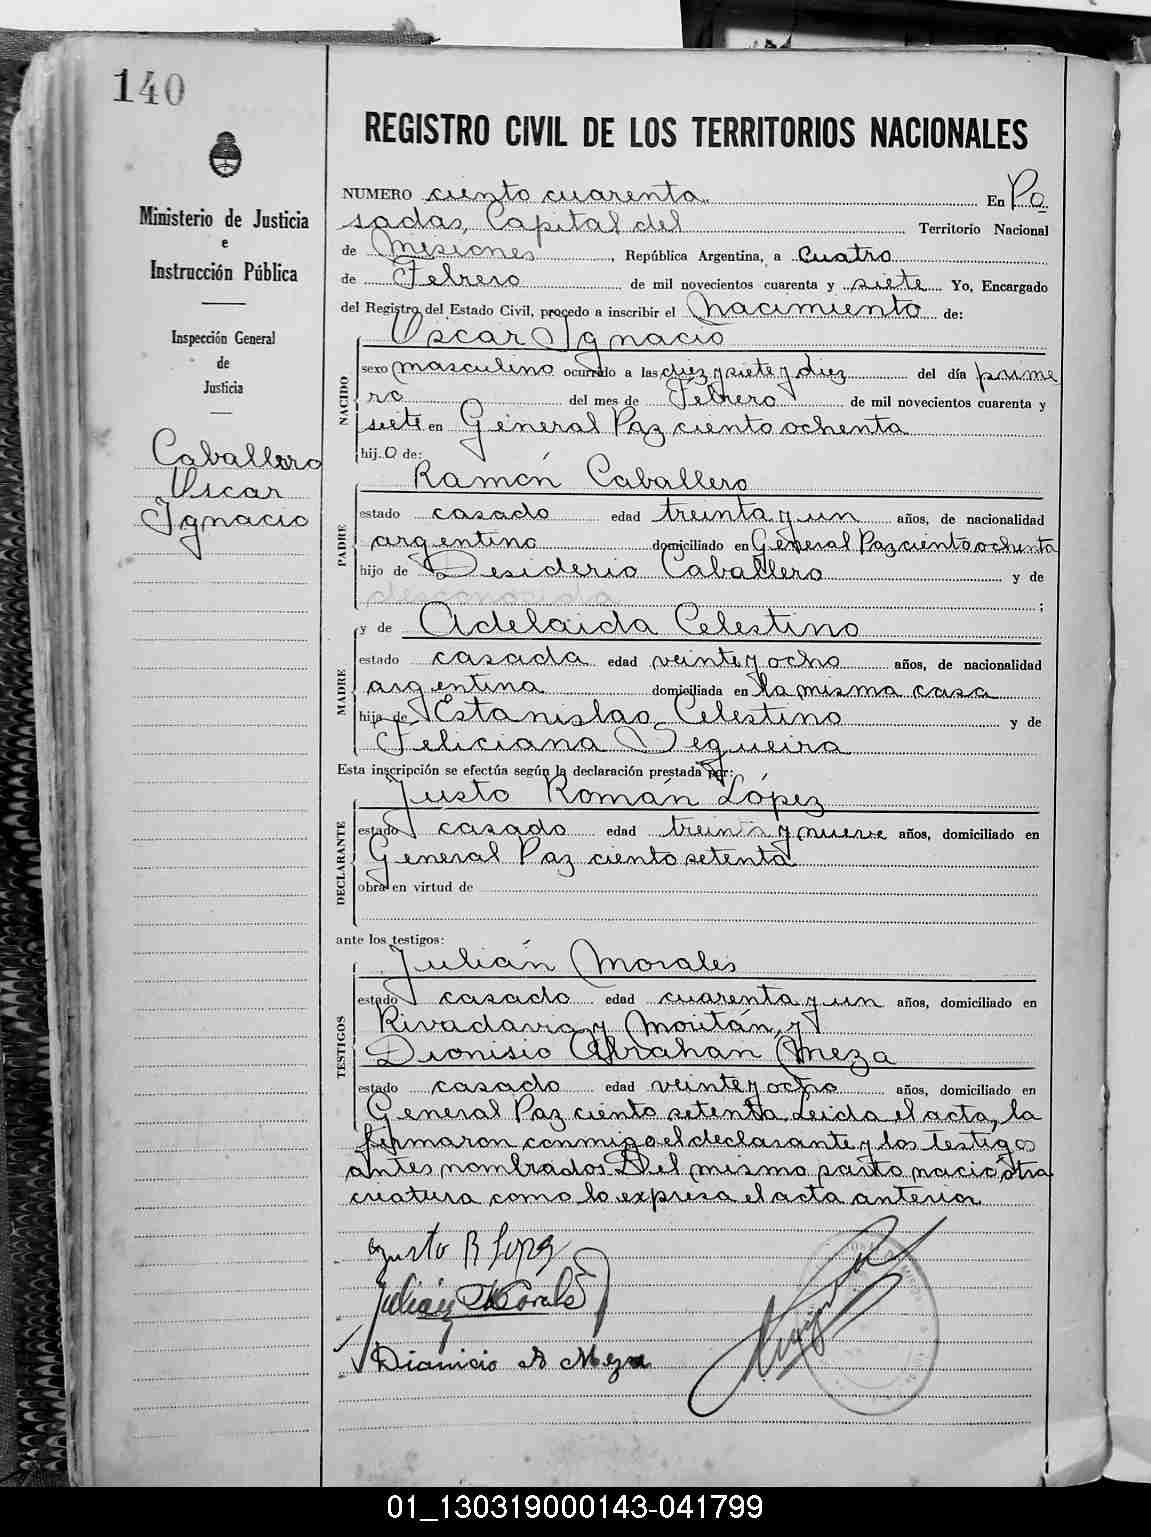 140
Ministerio de Justicia
e
Instrucción Pública
Inspección General
de
Justicia
Caballero
Oscar
Ignacio
REGISTRO CIVIL DE LOS TERRITORIOS NACIONALES
NUMERO ciento cuarenta En Po
sadas, Capital del Territorio Nacional
de Misiones, República Argentina, a cuatro
de Febrero de mil novecientos cuarenta y siete Yo, Encargado
del Registro del Estado Civil, procedo a inscribir el nacimiento de:
NACIDO
Oscar Ignacio
sexo masculino ocurrido a las diez y siete y diez del día prime
ro del mes de Febrero de mil novecientos cuarenta y
siete en General Paz ciento ochenta
hij.o de:
PADRE
Ramón Caballero
estado casado edad treinta y un años, de nacionalidad
argentino domiciliado en General Paz ciento ochenta
hijo de Desiderio Caballero y de
desconocida ;
MADRE
y de Adelaida Celestino
estado casada edad veinte y ocho años, de nacionalidad
argentina domiciliada en la misma casa
hija de Estanislao Celestino y de
Feliciana Segueira
Esta inscripción se efectúa según la declaración prestada por:
DECLARANTE
Justo Román López
estado casado edad treinta y nueve años, domiciliado en
General Paz ciento setenta
obra en virtud de
ante los testigos:
TESTIGOS
Julián Morales
estado casado edad cuarenta y un años, domiciliado en
Rivadavia y Moritán, y
Dionisio Abrahan Meza
estado casado edad veinte y ocho años, domiciliado en
General Paz ciento setenta. Leida el acta, la
firmaron conmigo el declarante y los testigos
antes nombrados. Del mismo parto nació otra
criatura como lo expresa el acta anterior
Justo R Lopez
Julián Morales
Dionicio A Meza
01_130319000143-041799